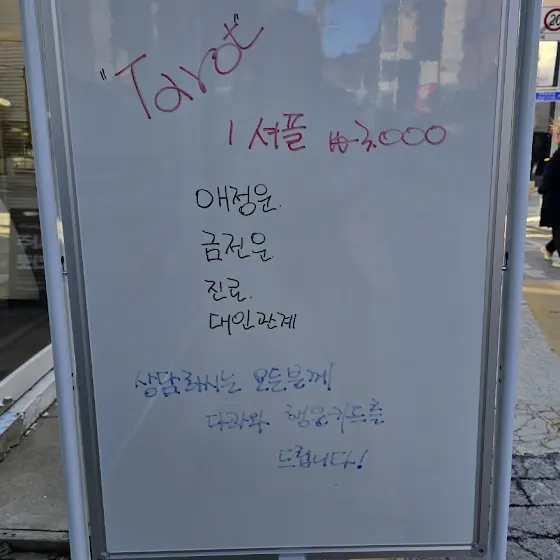 "Tarot"
1 셔플 ₩3,000
애정운.
금전운
진로.
대인관계
상담하시는 모든분께
다과와 행운카드를
드립니다!